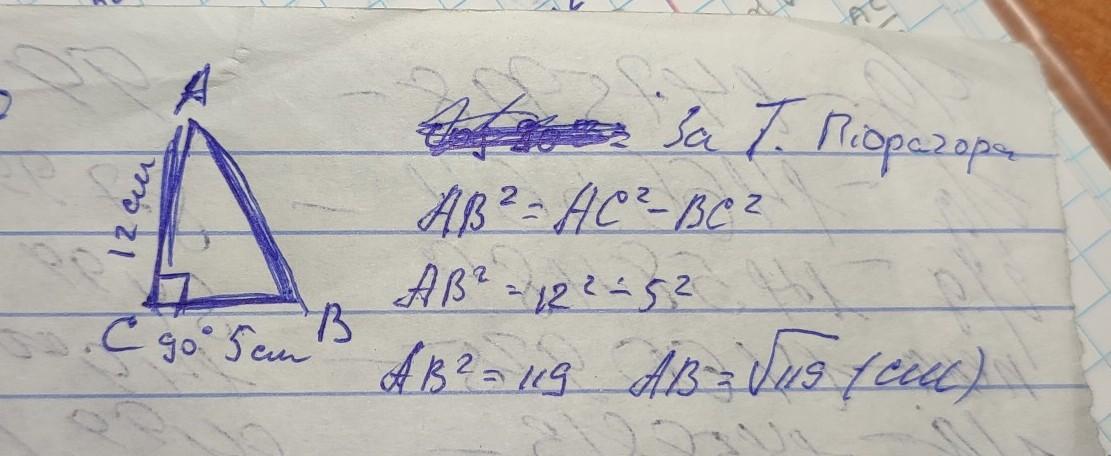 A
12 см
C 90° 5 см B
За Т. Піфагора
AB² = AC² - BC²
AB² = 12² - 5²
AB² = 119 AB = √119 (см)